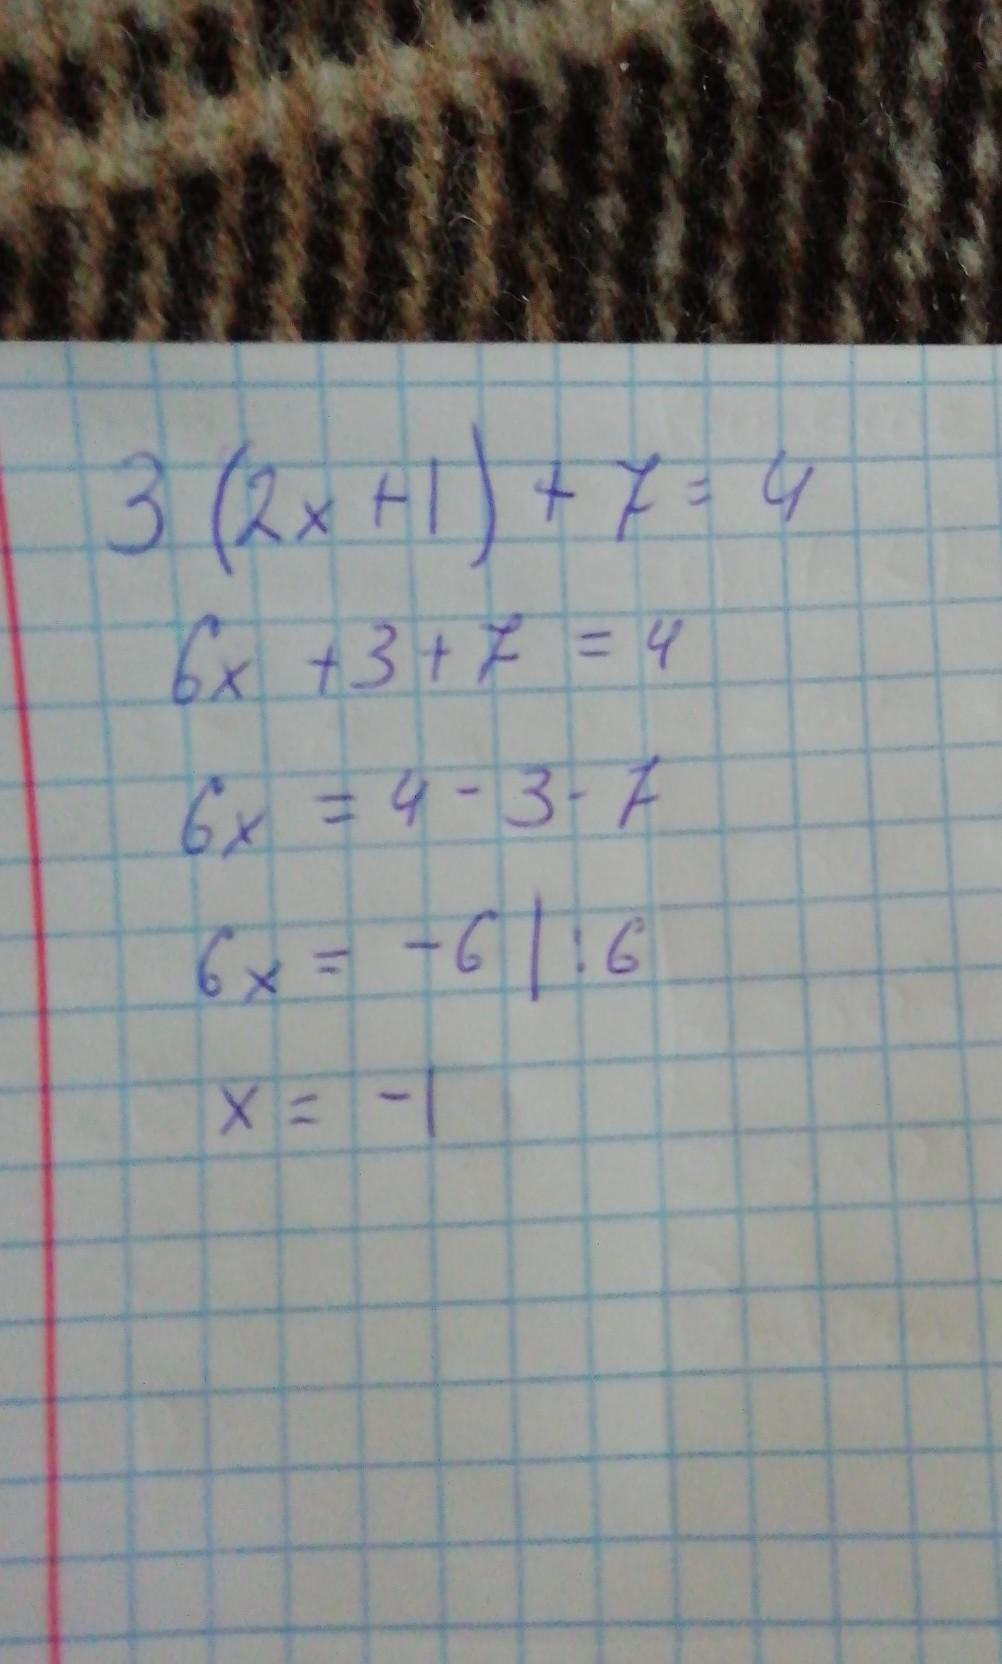 3 (2x + 1) + 7 = 4
6x + 3 + 7 = 4
6x = 4 - 3 - 7
6x = -6 | : 6
x = -1